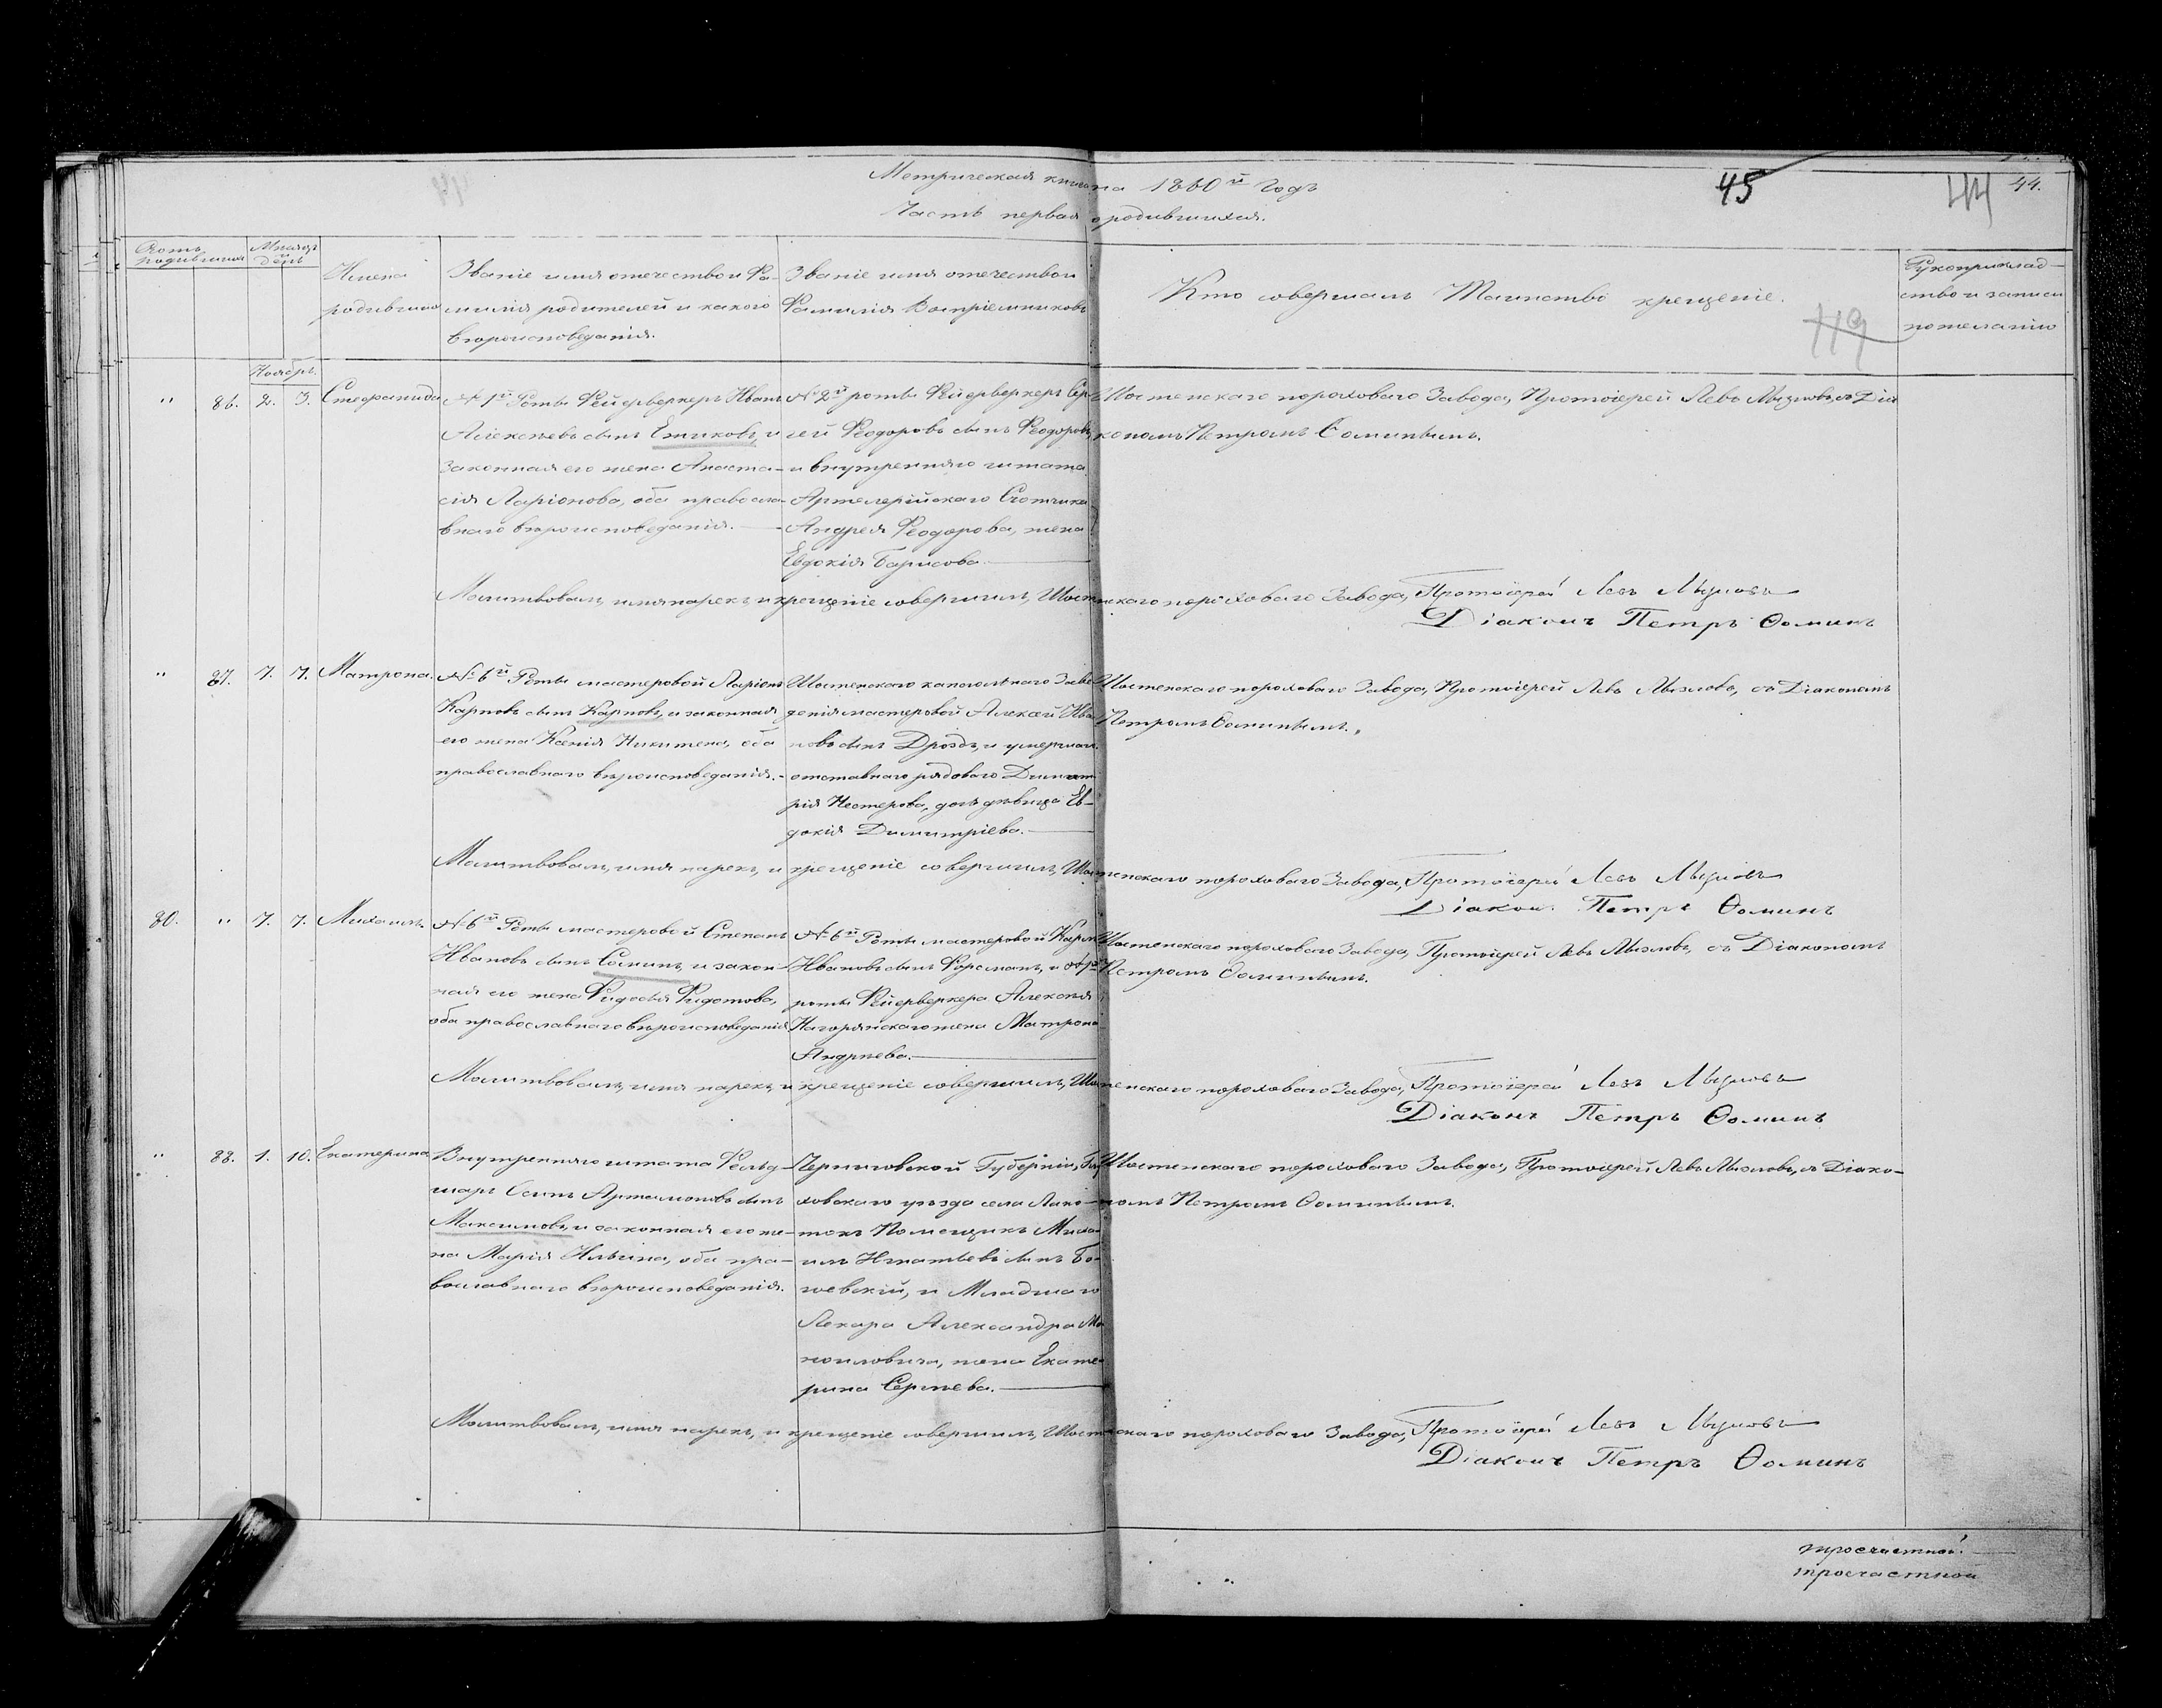 Метрическая книга на 1860й Годъ
Часть первая о родившихся.
45
44
44.
Мѣсяцъ
и
День
Имена
родившихся
Званіе имя отечество и Фа-
милія родителей и какого
вѣроисповеданія.
Званіе имя отечество и
Фамилія Воспріемниковъ
Кто совершалъ Таинство крещеніе.
119
Рукоприклад-
ство и записи
по желанію
Ноябрь.
" 86. 2. 3. Стефанида
№ 1й Роты Фейерверкеръ Иванъ
Алексѣевъ сынъ Ежиковъ, и
законная его жена Анаста-
сія Ларіонова, оба правосла-
внаго вѣроисповеданія.
№ 2й роты Фейерверкеръ Сер-
гей Феодоровъ сынъ Феодоровъ,
и внутренняго штата
Артелерійскаго
Андрея Феодорова, жена
Евдокія Барисова
Шостенскаго пороховаго Завода, Протоіерей Левъ Мызловъ, съ Діа
кономъ Петромъ Ѳоминымъ.
Молитвовалъ, имя нарекъ, и крещеніе совершилъ, Шостенскаго пороховаго Завода, Протоіерей Левъ Мызловъ
Діаконъ Петръ Ѳоминъ
" 87. 7. 7. Матрона.
№ 6й Роты мастеровой Ларіонъ
Карповъ сынъ Карповъ, и законная
его жена Ксенія Никитена, оба
православнаго вѣроисповеданія.
Шостенскаго капсюльнаго Заве
денія мастеровой Алексѣй Ива
новъ сынъ Дроздъ, и умершаго
отставнаго рядоваго Димит
рія Нестерова, дочь дѣвица Ев-
докія Димитріева.
Шостенскаго пороховаго Завода, Протоіерей Левъ Мызловъ, съ Діакономъ
Петромъ Ѳоминымъ.
Молитвовалъ, имя нарекъ, и крещеніе совершилъ, Шостенскаго пороховаго Завода, Протоіерей Левъ Мызловъ
Діаконъ Петръ Ѳоминъ
80. " 7. 7. Михаилъ.
№ 6й Роты мастеровой Степанъ
Ивановъ сынъ Соминъ, и закон-
ная его жена Фидосья Фидотова,
оба православнаго вѣроисповеданія.
№ 6й Роты мастеровой Карпъ
Ивановъ сынъ Форсманъ, и № 1й
роты Фейерверкера Алексѣя
Нагорянскаго жена Матрона
Андрѣева.
Шостенскаго пороховаго Завода, Протоіерей Левъ Мызловъ, съ Діакономъ
Петромъ Ѳоминымъ.
Молитвовалъ, имя нарекъ, и крещеніе совершилъ, Шостенскаго пороховаго Завода, Протоіерей Левъ Мызловъ
Діаконъ Петръ Ѳоминъ
" 88. 1. 10. Екатерина
Внутренняго штата Фельд-
шеръ Осипъ Артамоновъ сынъ
Максимовъ, и законная его же-
на Марія Ильина, оба пра-
вославнаго вѣроисповеданія.
Черниговской Губерніи, Глу
ховскаго уѣзда села
Помещикъ Миха-
илъ Игнатьевъ сынъ
и Младшаго
Лекара Александра Ма
ноиловича, жена Екате-
рина Сергѣева.
Шостенскаго пороховаго Завода, Протоіерей Левъ Мызловъ, съ Діако-
номъ Петромъ Ѳоминымъ.
Молитвовалъ, имя нарекъ, и крещеніе совершилъ, Шостенскаго пороховаго Завода, Протоіерей Левъ Мызловъ
Діаконъ Петръ Ѳоминъ